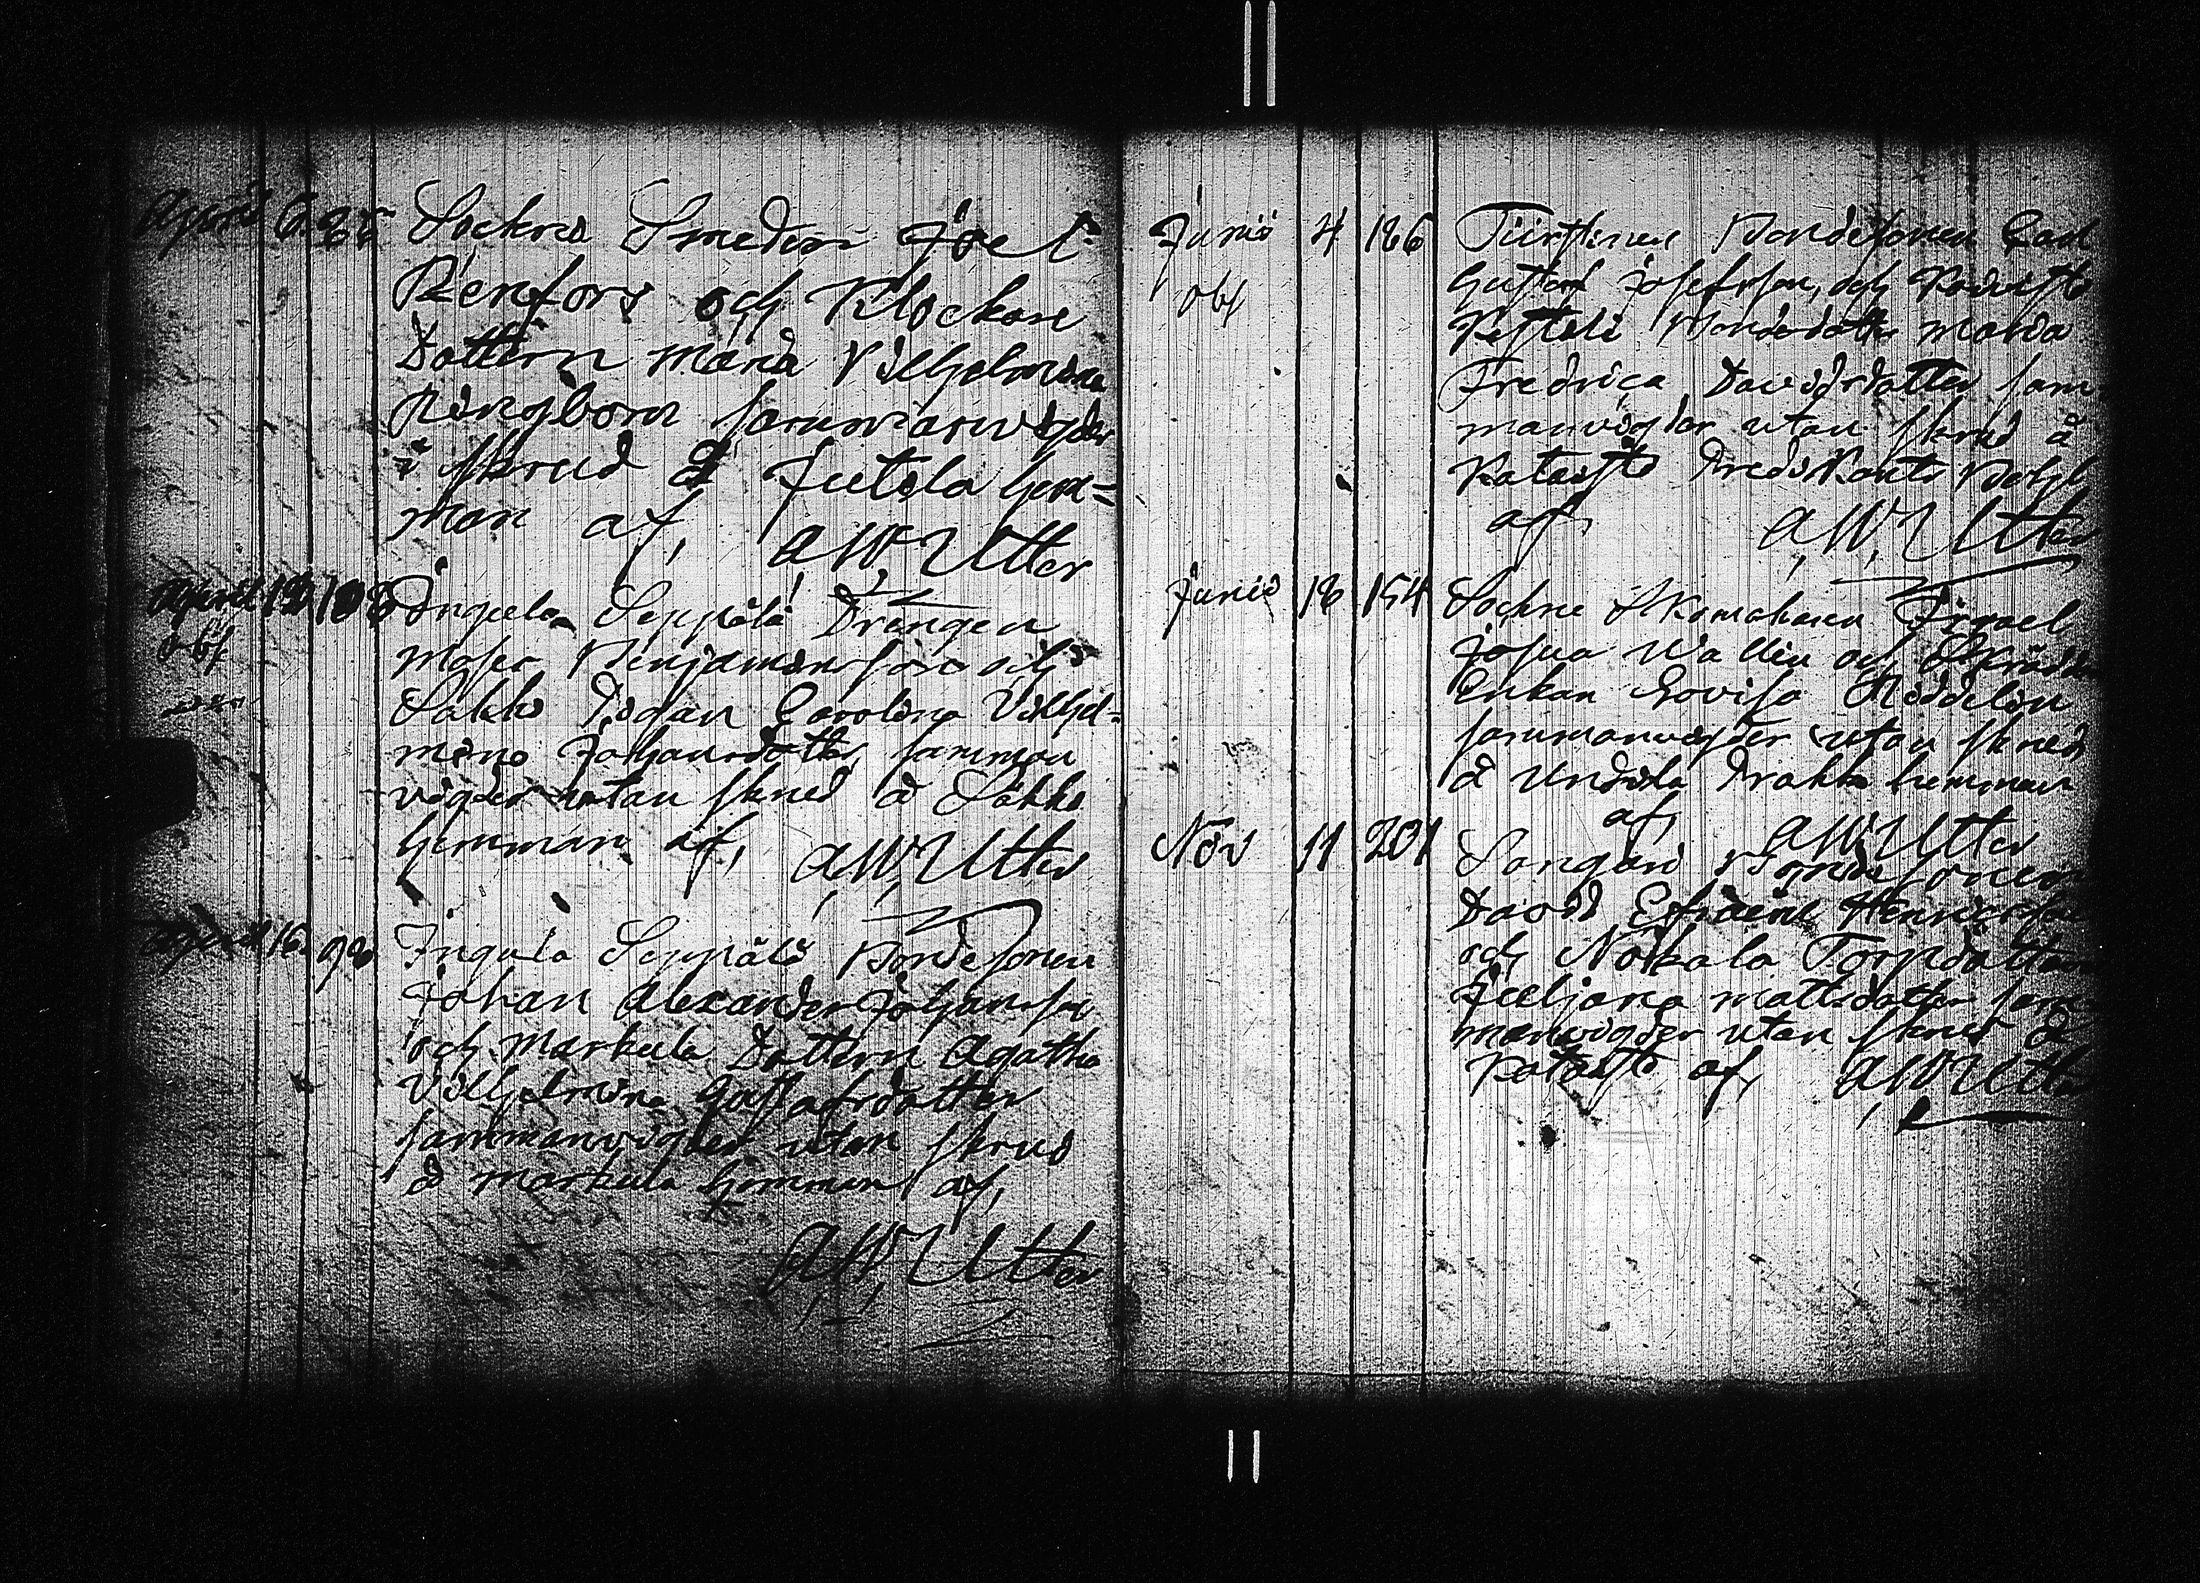 April 6 Sockne Smeden Joel
Renfors och Klockare
Dottern Maria Vilhjelmina
Ringbom sammanvigder
i skrud å Jutila hem=
man af, A W, Utter
April 12 108 Ingeela Seppälä Drängen
obs
Moses Benjaminsson och
Sakko Pigan Carolina Vilhjel=
mina Johansdotter, samman
vigder utan skrud å Sakko
hemman af, A W, Utter
April 16 Ingula Seppälä Bondesonen
Johan Alexander Johansson
och Markula Dottern Agatha
Vilhjelmina Gustafsdotter
sammanvigder utan skrud
å Markula hemman af,
A W, Utter
Junii 4 186 Bondesonen Carl
obs
Gustaf Josefsson, och
Bondedotter Maria
Fredrica Davidsdotter sam
manvigder utan skrud å
af, A W, Utter
Junii 18 154 Sockne Skomakaren Israel
Josua Wallin och
Enkan Lovisa
sammanvigder utan skrud
å hemman
af, A W, Utter
Nov 11 201 Songari Bondesonen
David Efraim Henricsson
och Torpdottern
Juljana Mattsdotter sam
manvigder utan skrud å
af, A W Utter